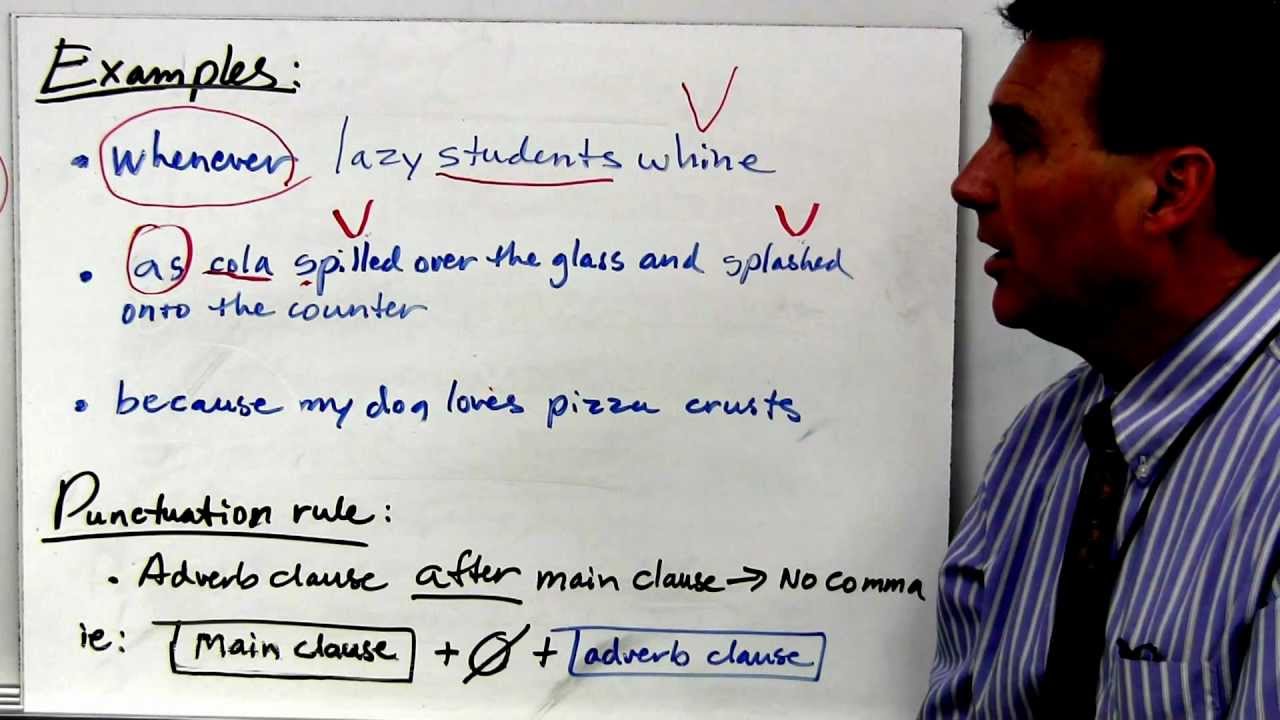 Examples:
• whenever lazy students whine
V
• as cola spilled over the glass and splashed
V V
onto the counter
• because my dog loves pizza crusts
Punctuation rule:
• Adverb clause after main clause → No comma
ie: Main clause + Ø + adverb clause